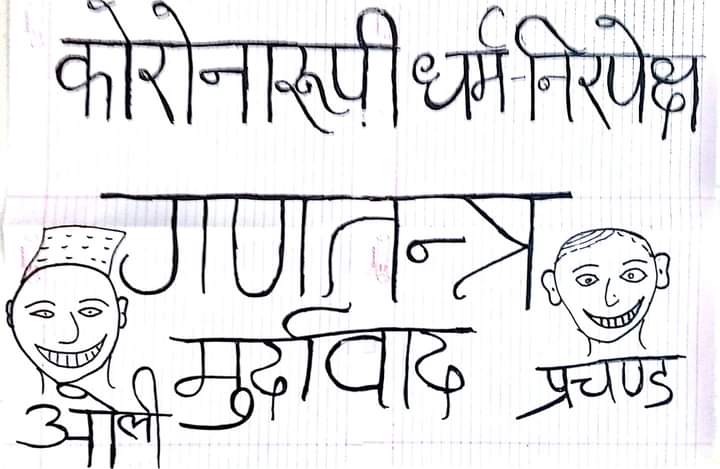 कोरोनारूपी धर्म-निरपेक्ष
गणतन्त्र
मुर्दावाद
ओली
प्रचण्ड